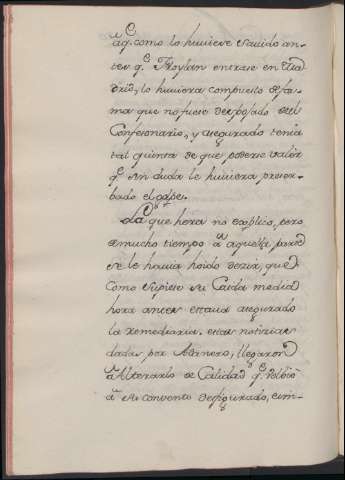 âq.ᵉ como lo huuiese sauido an-
tes q.ᵉ Froylan entrase en Ma
drid, lo huuiera compuesto de fa
ma que no fuese despojado del
Confesonario, y asegurado tenia
tal quinta de que poderse valer
q.ᵉ sin duda le huuiera preser-
bado el golpe.
La que hera no explico, pero
a mucho tiempo â aquella parte
se le hauia hoido dezir, que
Como supiese su Caida media
hora antes estaua asegurado
la remediaria. estas notizias
dadas por Abanero, llegaron
â Alterarlo de Calidad q.ᵉ Polbio
â su convento desfigurado, cum-